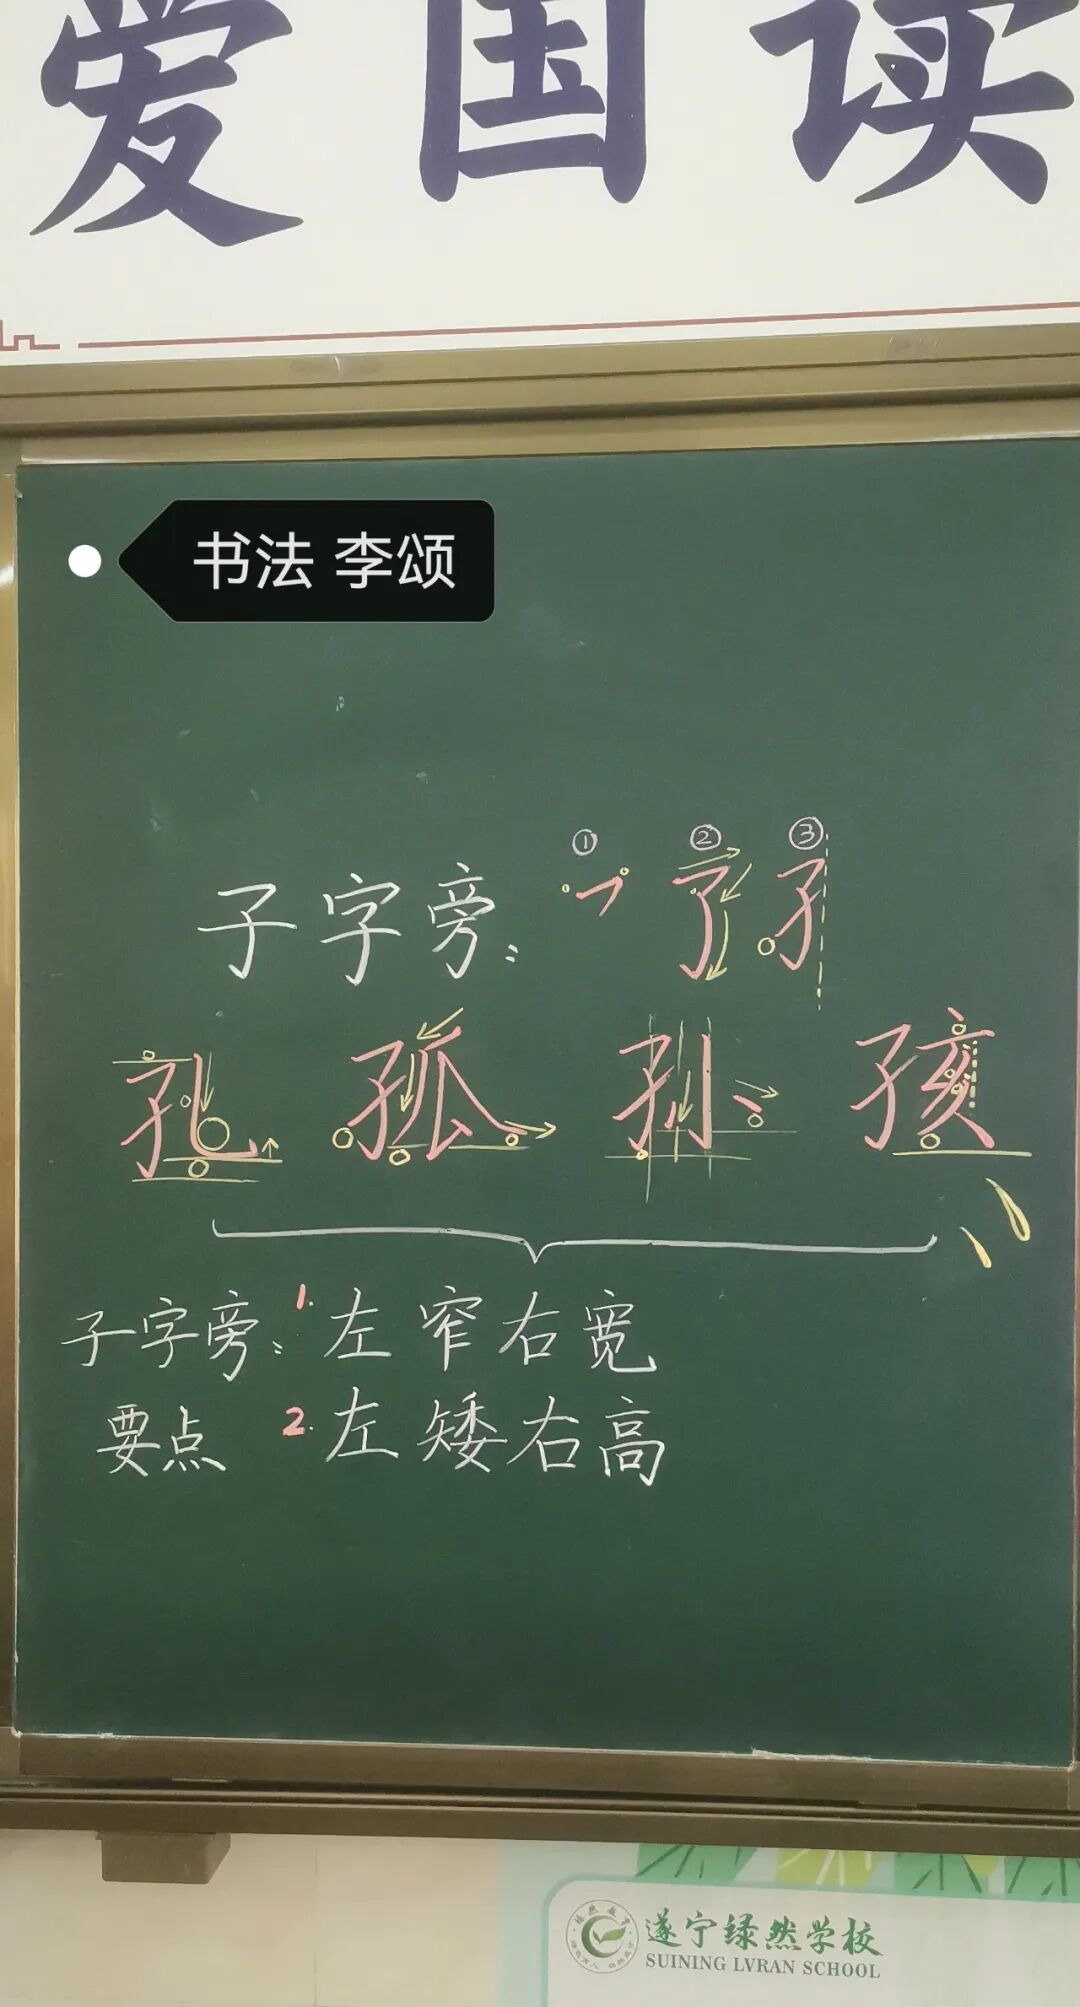 爱国读
书法 李颂
① ② ③
子字旁：
孔 孤 孙 孩
子字旁： 1. 左窄右宽
要点 2. 左矮右高
遂宁绿然学校
SUINING LVRAN SCHOOL